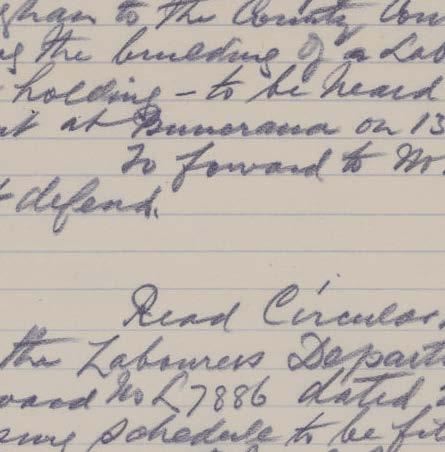 ghan to the County Cou
ng the building of a Lab
holding - to be heard
at Buncrana on 13
To forward to Mr.
t defend.
Read Circular
the Labourers Departm
ward No L 7886 dated
schedule to be fil